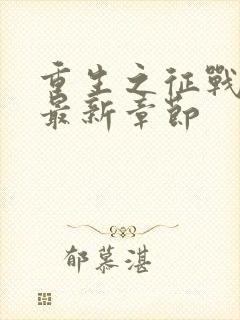 重生之征戰
最新章節
郁慕湛